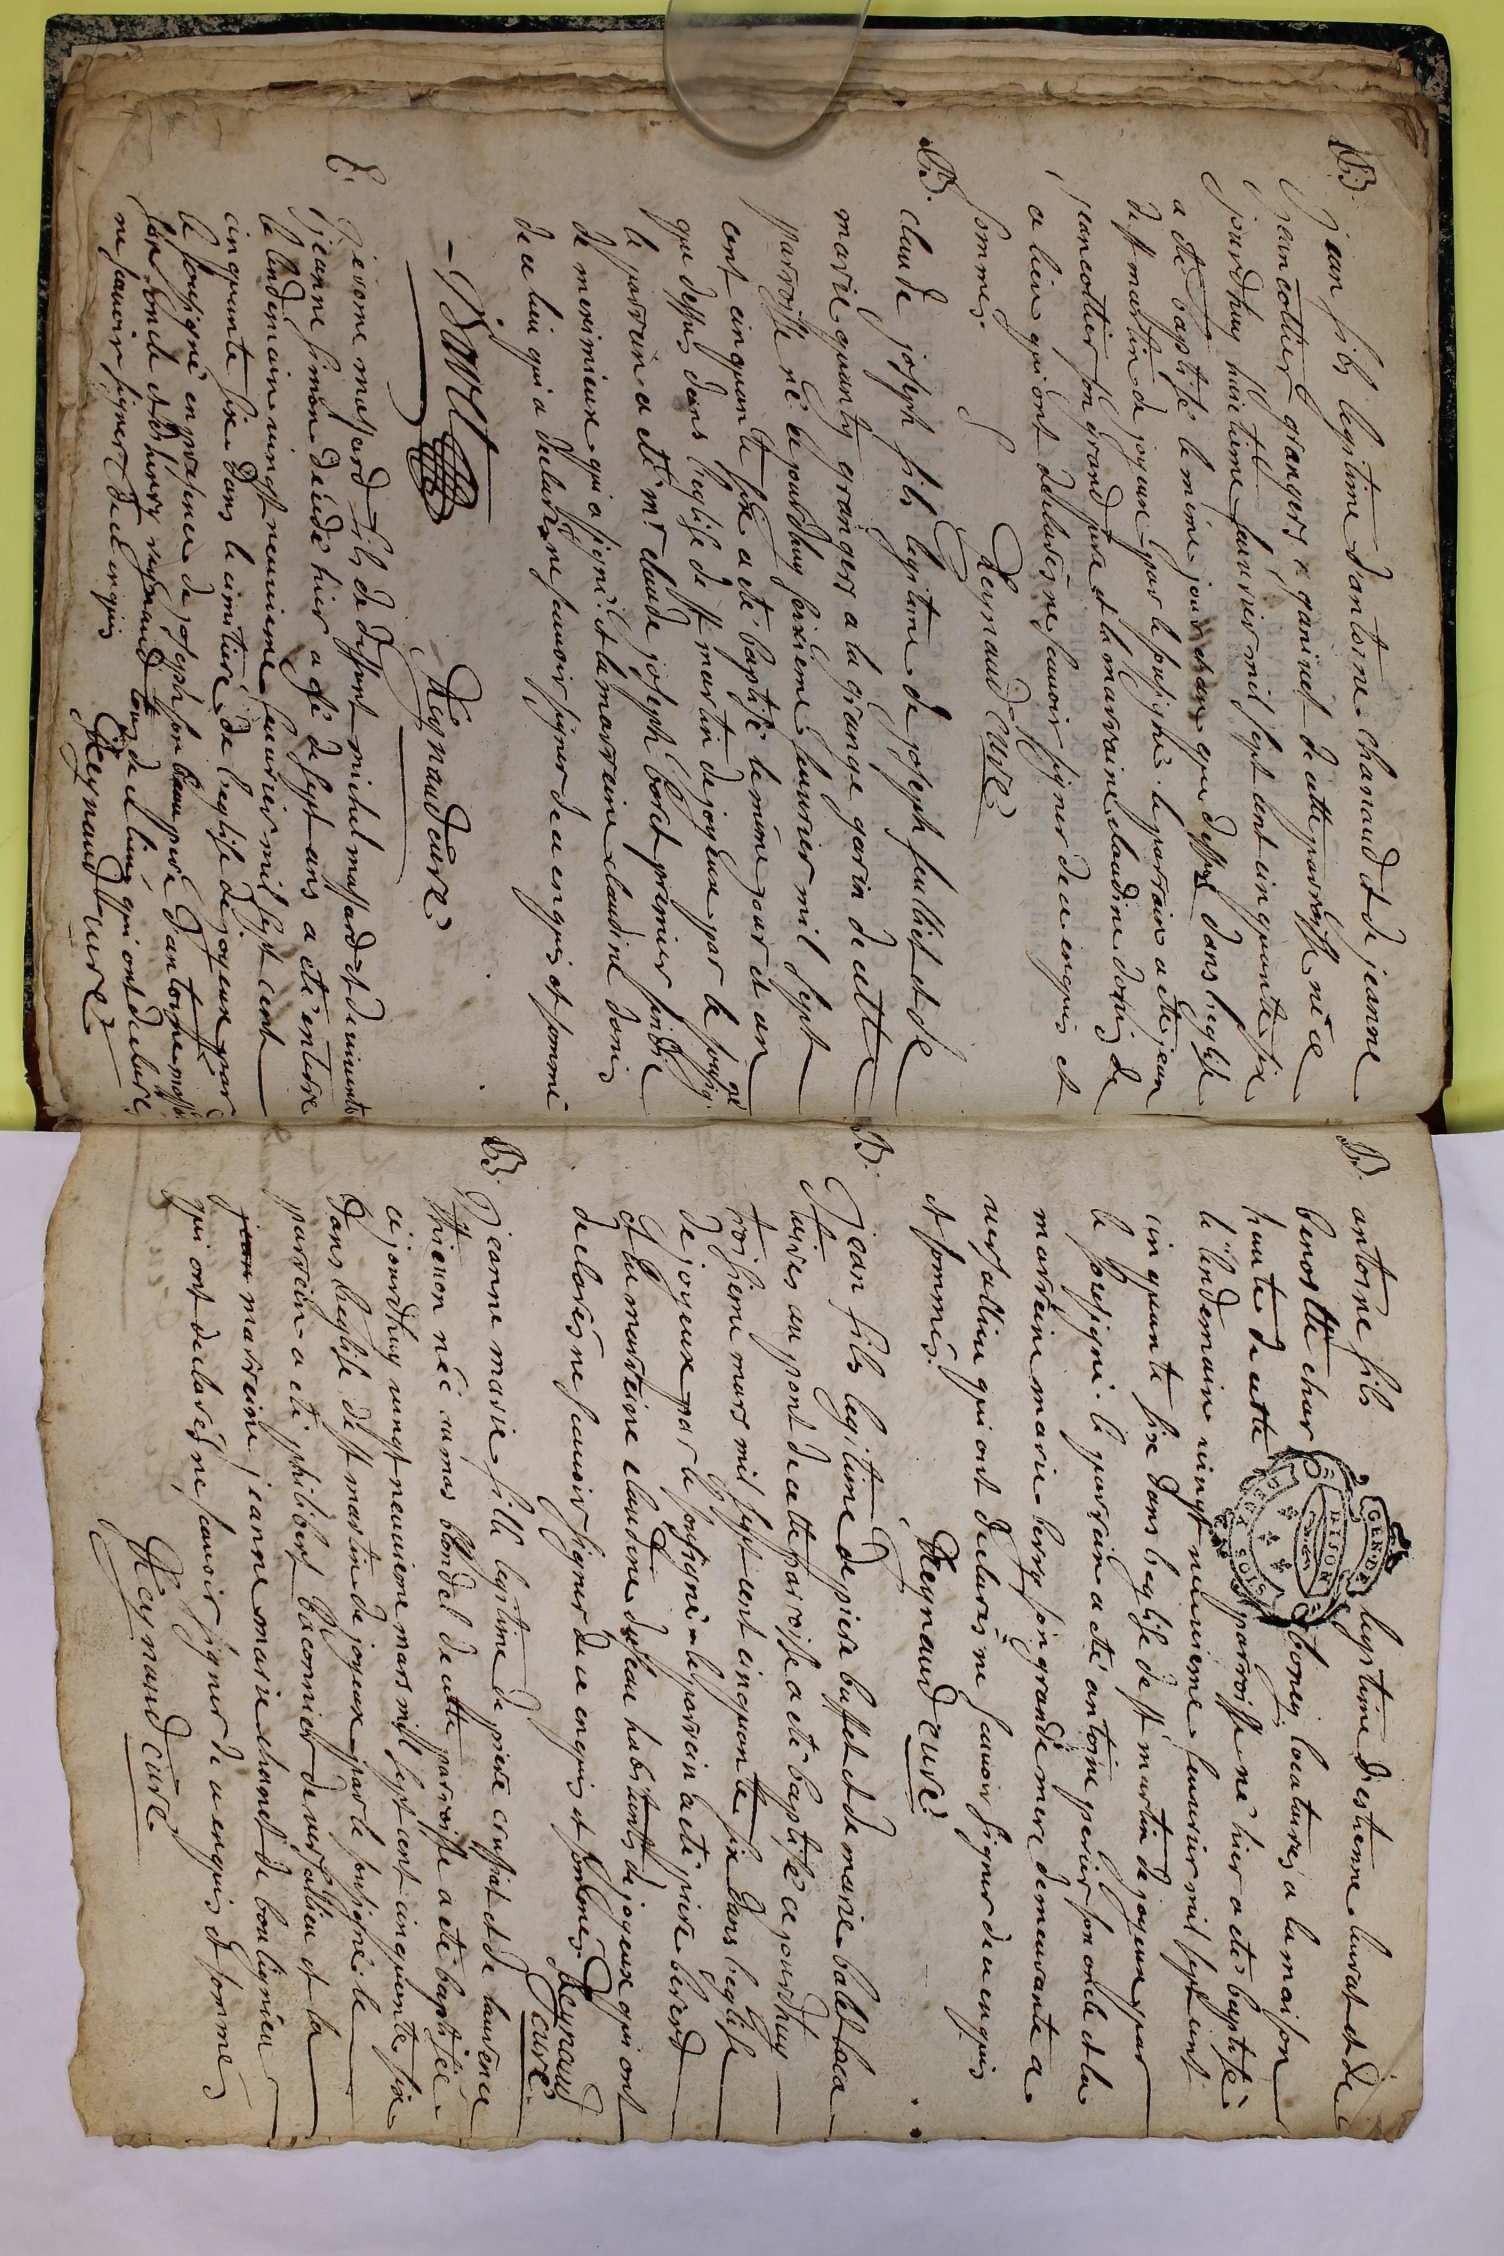 B. jean fils legitime d'antoine chanaud et de jeanne
jean cottier grangers a ganivet de cette parroisse né ce
jourdhuy huictieme feuvrier mil sept cent cinquante six
a eté baptisé le même jour et an que dessus dans l'eglise
de st martin de joyeux par le soussigné. le parrain a eté jean
jean cottier son grand pere et la marraine claudine donis de
ce lieu qui ont declarés ne scavoir signer de ce enquis et
sommés.
Reynaud curé
B. claude joseph fils legitime de joseph feulliet et de
marie quanty grangers a la grange garin de cette
parroisse né ce jourdhuy seixieme feuvrier mil sept
cent cinquante six a eté baptisé le même jour et an
que dessus dans l'eglise de st martin de joyeux par le soussigné
le parrein a eté mr claude joseph boret premier sindic
de meximieux qui a signé. et la marreine claudine donis
de ce lieu qui a declaré ne scavoir signer de ce enquis et sommé
- Boret
Reynaud curé
E. jerome massard fils de deffunt michel massard et de vivante
jeanne simon decedé hier agé de sept ans a eté enterré
le lendemain vingt neuvieme feuvrier mil sept cent
cinquante six dans le cimetiere de l'eglise de joyeux par
le soussigné en présence de joseph son beau pere d'antoine massard
son oncle et de henry reynaud tous de ce lieu, qui ont declaré
ne scavoir signer de ce enquis
Reynaud curé
B. antoine fils legitime d'estienne lurat et de
benoitte char boney locatures a la maison
haute de cette parroisse né hier a eté baptisé
le lendemain vingt neuvieme feuvrier mil sept cent
cinquante six dans l'eglise de st martin de joyeux par
le soussigné. le parrein a eté antoine perier son oncle et la
marreine marie berry son grande mere demeurante a
versallieu qui ont declarés ne scavoir signer de ce enquis
et sommés.
Reynaud curé
GENER
DIJON
SOLS
B. jean fils legitime de piere buffet et de marie balet loca
tures au pont de cette parroisse a eté baptisé ce jourdhuy
troisieme mars mil sept cent cinquante six dans l'eglise
de joyeux par le soussigné le parrein a eté piere bererd
et la marreine claudine duleau habitants de joyeux qui ont
declarés ne scavoir signer de ce enquis et sommés.
Reynaud
curé
B. jeanne marie fille legitime de piere crussiat et de laurence
thienon née au mas blondel de cette parroisse a eté baptisée
ce jourdhuy vingt neuvieme mars mil sept cent cinquante six
dans l'eglise de st martin de joyeux par le soussigné le
parrein a eté philibert baconnier de versallieu et la
jean marreine jeanne marie chanet de bouligneu
qui ont declarés ne scavoir signer de ce enquis et sommés
Reynaud curé